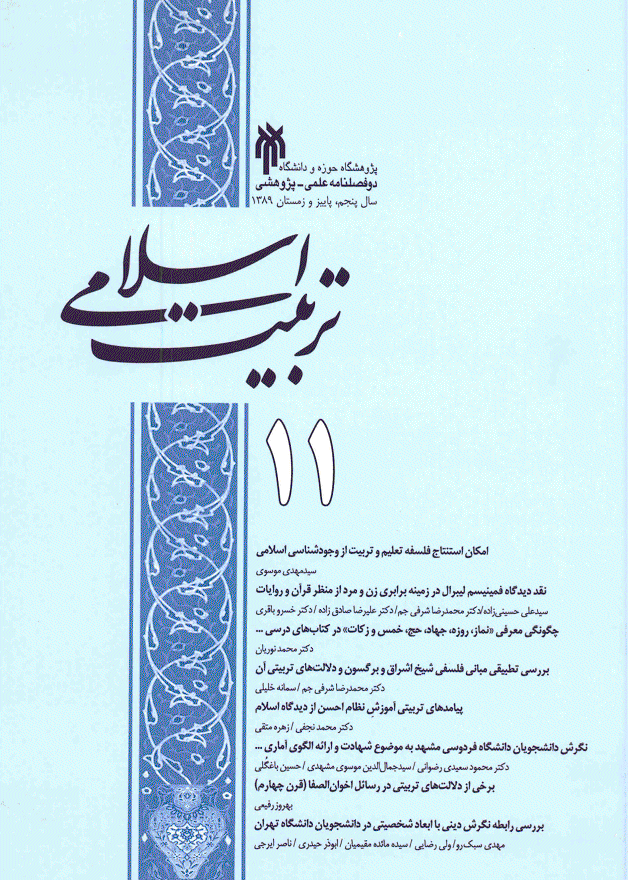 پژوهشگاه حوزه و دانشگاه
دوفصلنامه علمی - پژوهشی
سال پنجم، پاییز و زمستان ۱۳۸۹
تربیت اسلامی
۱۱
امکان استنتاج فلسفه تعلیم و تربیت از وجودشناسی اسلامی
سیدمهدی موسوی
نقد دیدگاه فمینیسم لیبرال در زمینه برابری زن و مرد از منظر قرآن و روایات
سیدعلی حسینی‌زاده/دکتر محمدرضا شرفی جم/ دکتر علیرضا صادق زاده / دکتر خسرو باقری
چگونگی معرفی «نماز، روزه، جهاد، حج، خمس و زکات» در کتاب‌های درسی ...
دکتر محمد نوریان
بررسی تطبیقی مبانی فلسفی شیخ اشراق و برگسون و دلالت‌های تربیتی آن
دکتر محمدرضا شرفی جم / سمانه خلیلی
پیامدهای تربیتی آموزش نظام احسن از دیدگاه اسلام
دکتر محمد نجفی / زهره متقی
نگرش دانشجویان دانشگاه فردوسی مشهد به موضوع شهادت و ارائه الگوی آماری ...
دکتر محمود سعیدی رضوانی / سیدجمال‌الدین موسوی مشهدی / حسین باغگلی
برخی از دلالت‌های تربیتی در رسائل اخوان‌الصفا (قرن چهارم)
بهروز رفیعی
بررسی رابطه نگرش دینی با ابعاد شخصیتی در دانشجویان دانشگاه تهران
مهدی سبک‌رو/ ولی رضایی / سیده مائده مقیمیان / ابوذر حیدری / ناصر ایرجی